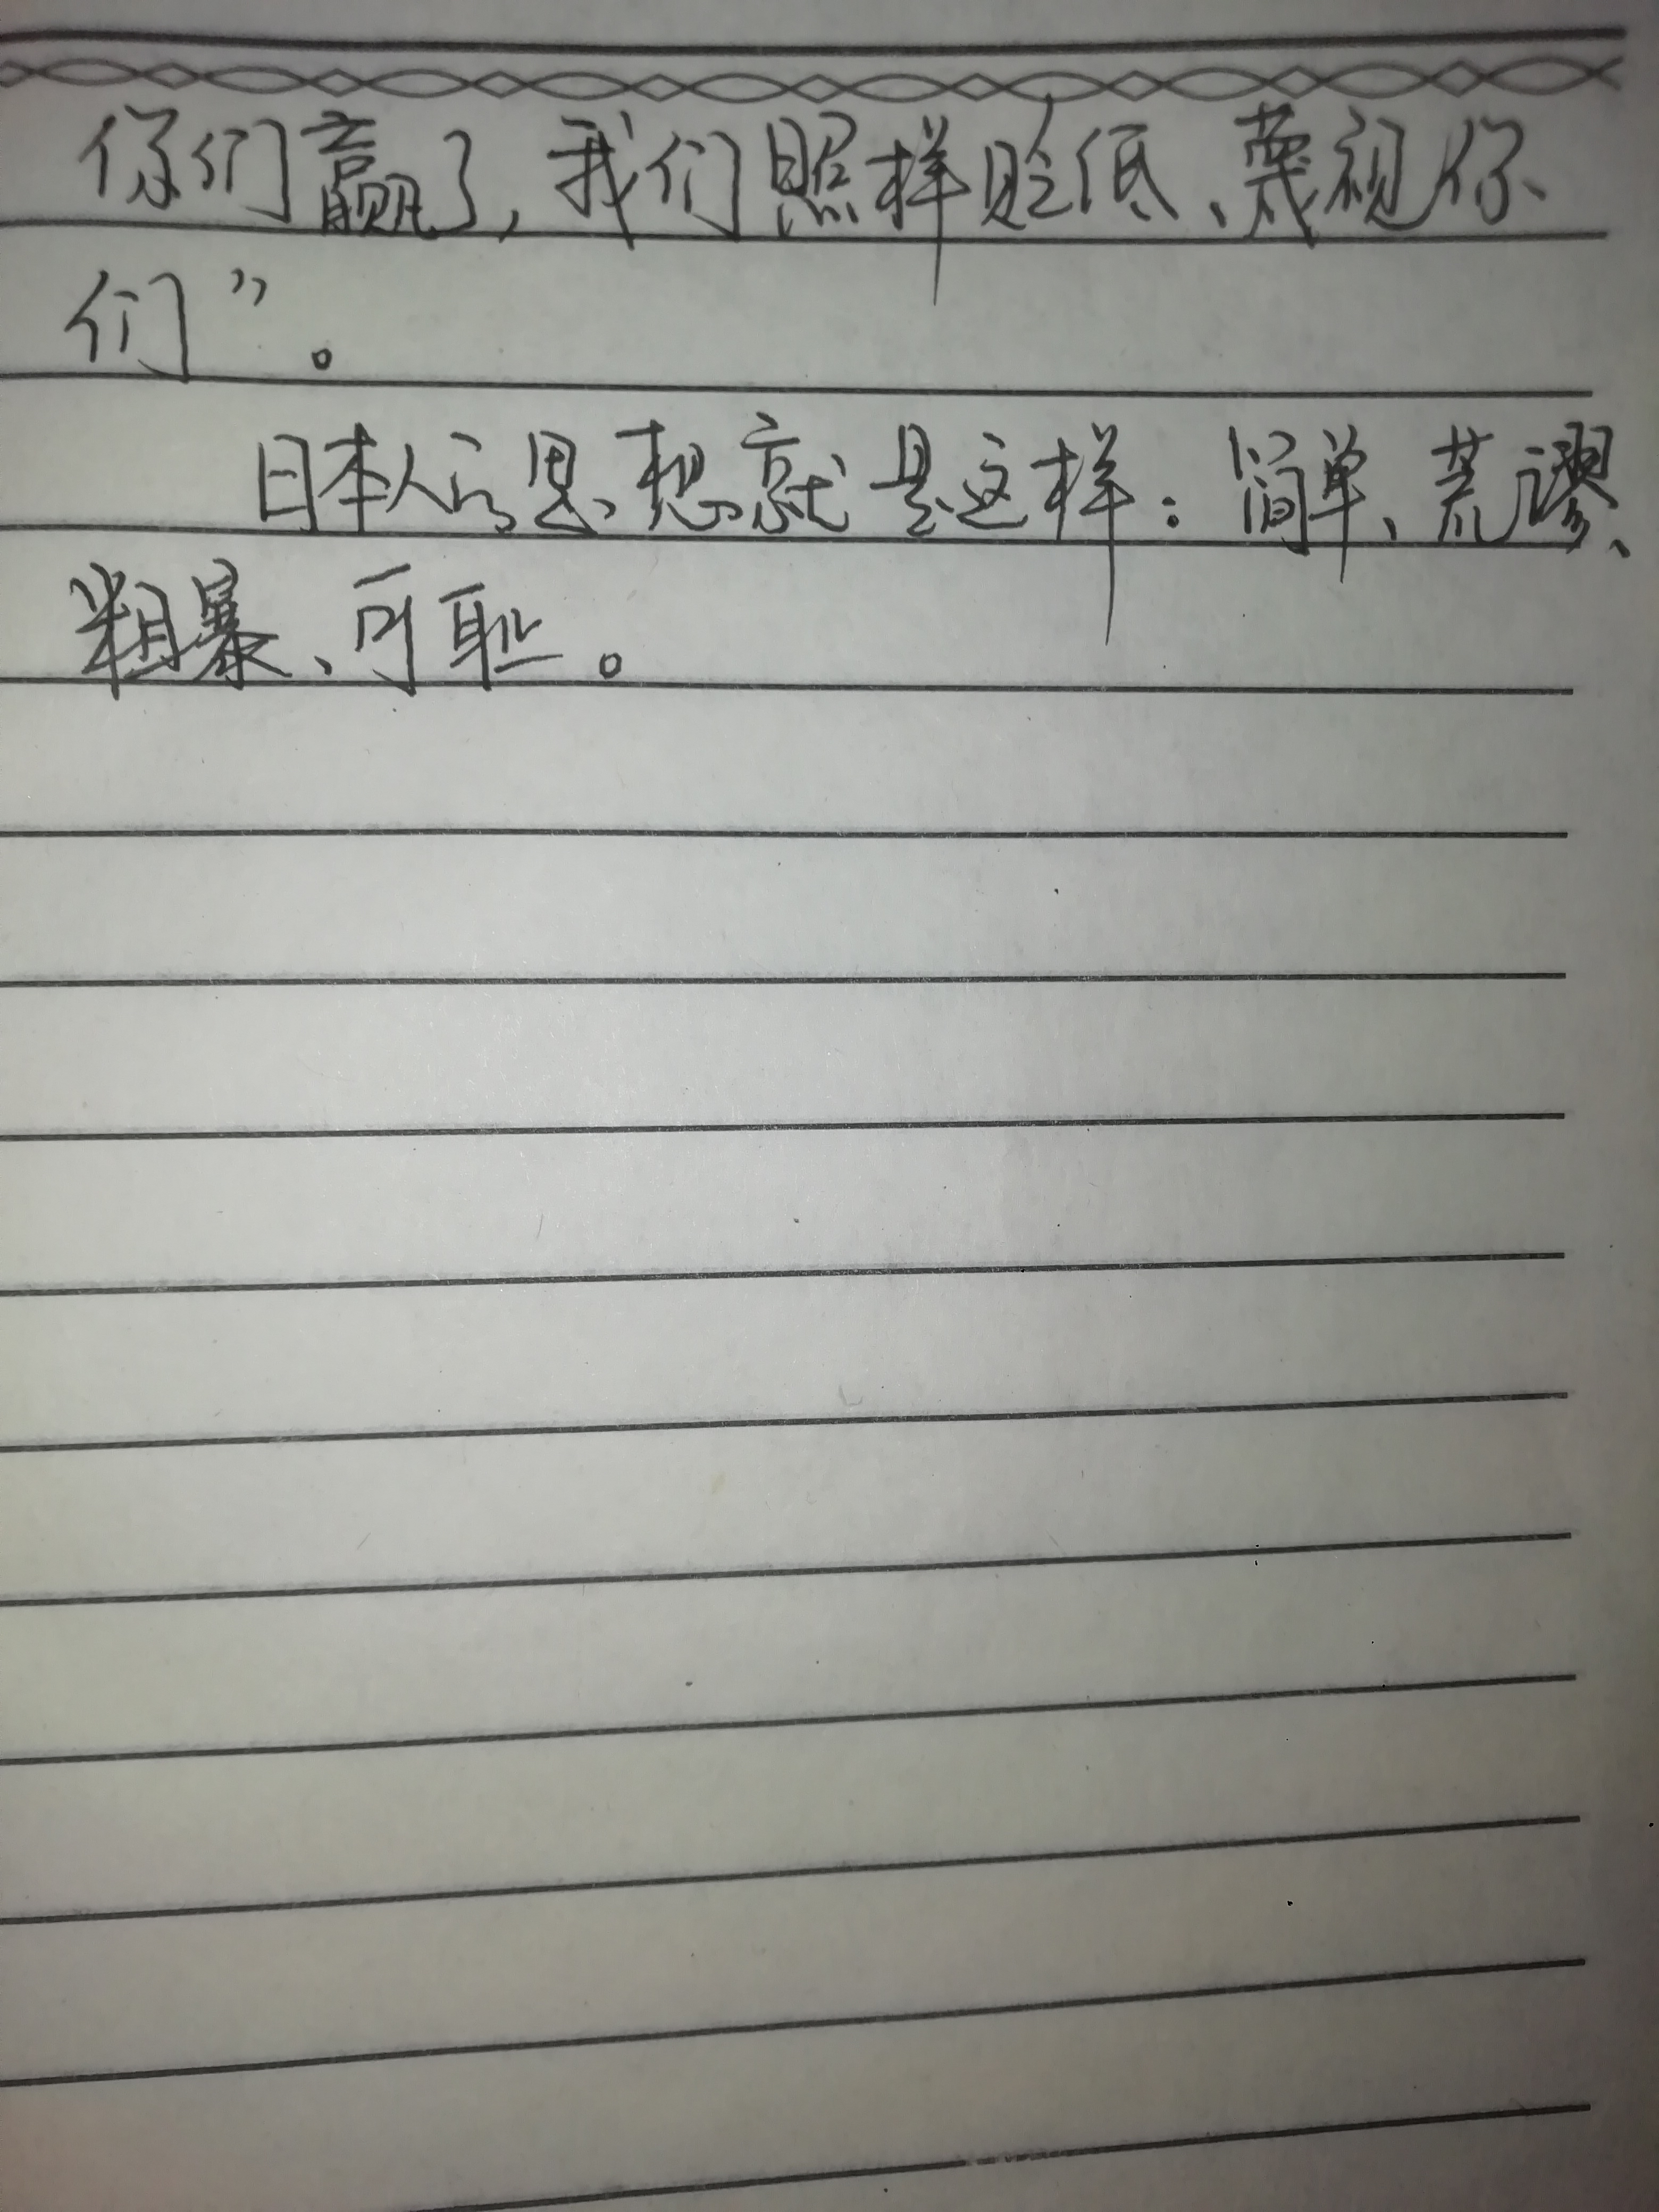 你们赢了，我们照样贬低、蔑视你
们”。
日本人的思想就是这样：简单、荒谬、
粗暴、可耻。